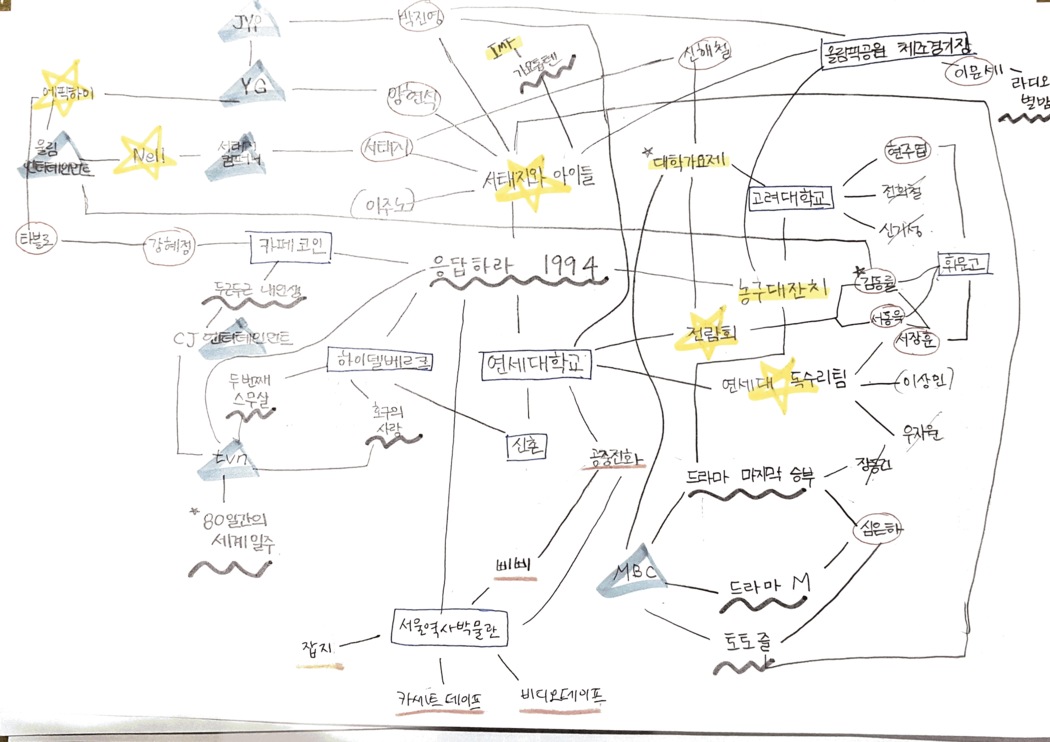 JYP
박진영
IMF
가요톱텐
신해철
올림픽공원 체조경기장
이문세
라디오
별밤
에픽하이
YG
양현석
울림
엔터테인먼트
Nell
서태지
컴퍼니
서태지
서태지와 아이들
이주노
*대학가요제
고려대학교
현주엽
전희철
신기성
휘문고
타블로
강혜정
카페코인
응답하라 1994
농구대잔치
*김동률
서동욱
서장훈
두근두근 내인생
CJ 엔터테인먼트
하이델베르크
연세대학교
전람회
연세대 독수리팀
이상민
우지원
두번째
스무살
호구의
사랑
신촌
공중전화
tvn
드라마 마지막 승부
장동건
심은하
*80일간의
세계일주
삐삐
MBC
드라마 M
토토즐
서울역사박물관
잡지
카세트 테이프
비디오테이프